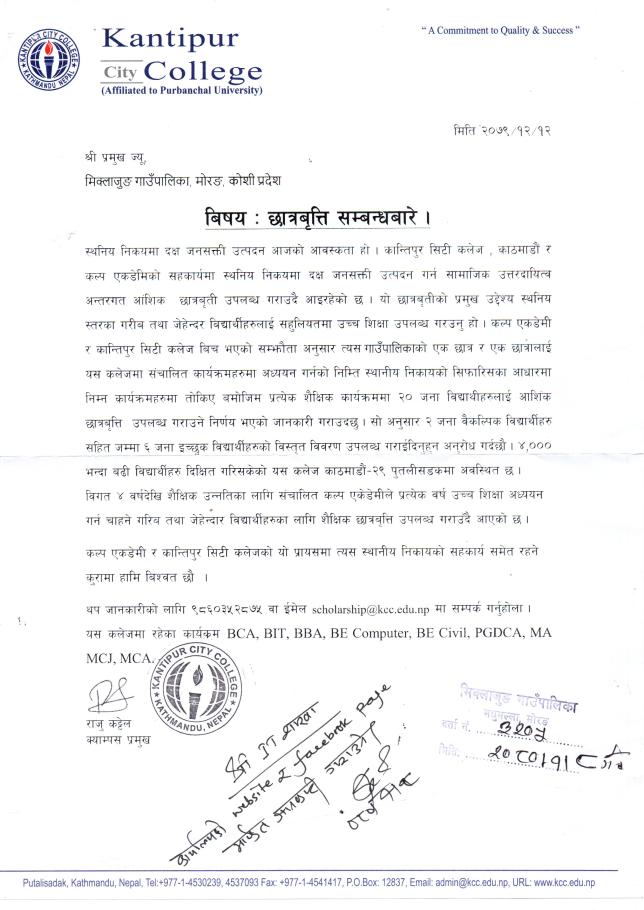 Kantipur
City College
(Affiliated to Purbanchal University)
KANTIPUR CITY COLLEGE
KATHMANDU, NEPAL
“ A Commitment to Quality & Success ”
मिति २०७९/१२/१२
श्री प्रमुख ज्यू,
मिक्लाजुङ गाउँपालिका, मोरङ, कोशी प्रदेश
बिषय : छात्रबृत्ति सम्बन्धबारे ।
स्थनिय निकयमा दक्ष जनसक्ती उत्पदन आजको आवस्कता हो । कान्तिपुर सिटी कलेज , काठमाडौं र
कल्प एकडेमिको सहकार्यमा स्थनिय निकयमा दक्ष जनसक्ती उत्पदन गर्न सामाजिक उत्तरदायित्व
अन्तरगत आंशिक छात्रबृती उपलब्ध गराउदै आइरहेको छ । यो छात्रबृतीको प्रमुख उद्देश्य स्थनिय
स्तरका गरीब तथा जेहेन्दर विद्यार्थीहरुलाई सहुलियतमा उच्च शिक्षा उपलब्ध गरउनु हो । कल्प एकडेमी
र कान्तिपुर सिटी कलेज बिच भएको सम्झौता अनुसार त्यस गाउँपालिकाको एक छात्र र एक छात्रालाई
यस कलेजमा संचालित कार्यक्रमहरुमा अध्ययन गर्नको निम्ति स्थानीय निकायको सिफारिसका आधारमा
निम्न कार्यक्रमहरुमा तोकिए बमोजिम प्रत्येक शैक्षिक कार्यक्रममा २० जना विद्यार्थीहरुलाई आशिक
छात्रबृत्ति उपलब्ध गराउने निर्णय भएको जानकारी गराउदछु । सो अनुसार २ जना वैकल्पिक विद्यार्थीहरु
सहित जम्मा ६ जना इच्छुक विद्यार्थीहरुको विस्तृत विवरण उपलब्ध गराईदिनुहन अनुरोध गर्दछौ । ४,०००
भन्दा बढी विद्यार्थीहरु दिक्षित गरिसकेको यस कलेज काठमाडौं-२९ पुतलीसडकमा अवस्थित छ ।
विगत ४ वर्षदेखि शैक्षिक उन्नतिका लागि संचालित कल्प एकेडेमीले प्रत्येक वर्ष उच्च शिक्षा अध्ययन
गर्न चाहने गरिव तथा जेहेन्दार विद्यार्थीहरुका लागि शैक्षिक छात्रवृत्ति उपलब्ध गराउँदै आएको छ ।
कल्प एकडेमी र कान्तिपुर सिटी कलेजको यो प्रायसमा त्यस स्थानीय निकायको सहकार्य समेत रहने
कुरामा हामि बिश्वत छौ ।
थप जानकारीको लागि ९८६०३५२८७५ वा ईमेल scholarship@kcc.edu.np मा सम्पर्क गर्नुहोला ।
यस कलेजमा रहेका कार्यकम BCA, BIT, BBA, BE Computer, BE Civil, PGDCA, MA
MCJ, MCA.
KANTIPUR CITY COLLEGE
KATHMANDU, NEPAL
राजु कट्टेल
क्याम्पस प्रमुख
श्री IT शाखा
website र facebook page
मिक्लाजुङ गाउँपालिका
मधुमल्ला, मोरङ
दर्ता नं. ३२०५
मिति: २०८०।१।८
Putalisadak, Kathmandu, Nepal, Tel:+977-1-4530239, 4537093 Fax: +977-1-4541417, P.O.Box: 12837, Email: admin@kcc.edu.np, URL: www.kcc.edu.np